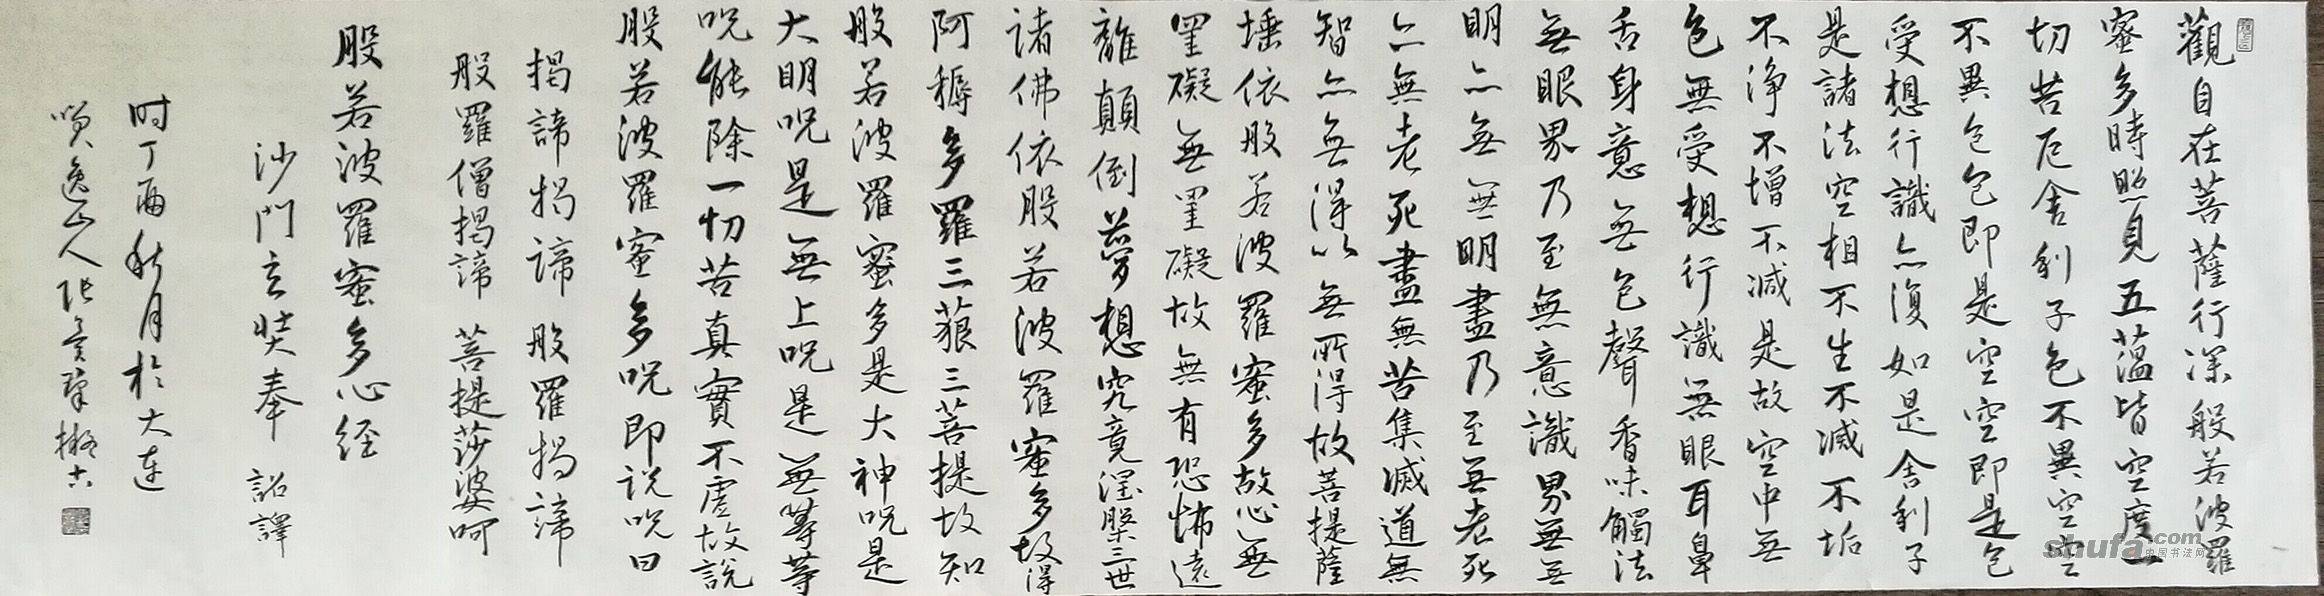 觀自在菩薩行深般若波羅
蜜多時照見五蕴皆空度一
切苦厄舍利子色不異空空
不異色色即是空空即是色
受想行識亦復如是舍利子
是諸法空相不生不滅不垢
不淨不增不減是故空中無
色無受想行識無眼耳鼻
舌身意無色聲香味觸法
無眼界乃至無意識界無無
明亦無無明盡乃至無老死
亦無老死盡無苦集滅道無
智亦無得以無所得故菩提薩
埵依般若波羅蜜多故心無
罣礙無罣礙故無有恐怖遠
離顛倒夢想究竟涅槃三世
諸佛依般若波羅蜜多故得
阿耨多羅三藐三菩提故知
般若波羅蜜多是大神呪是
大明呪是無上呪是無等等
呪能除一切苦真實不虛故説
般若波羅蜜多呪即説呪曰
揭諦揭諦般羅揭諦
般羅僧揭諦 菩提莎婆呵
般若波羅蜜多心经
沙門玄奘奉 詔譯
时丁酉秋月於大连
逸山人张
shufa.com
中国书法网